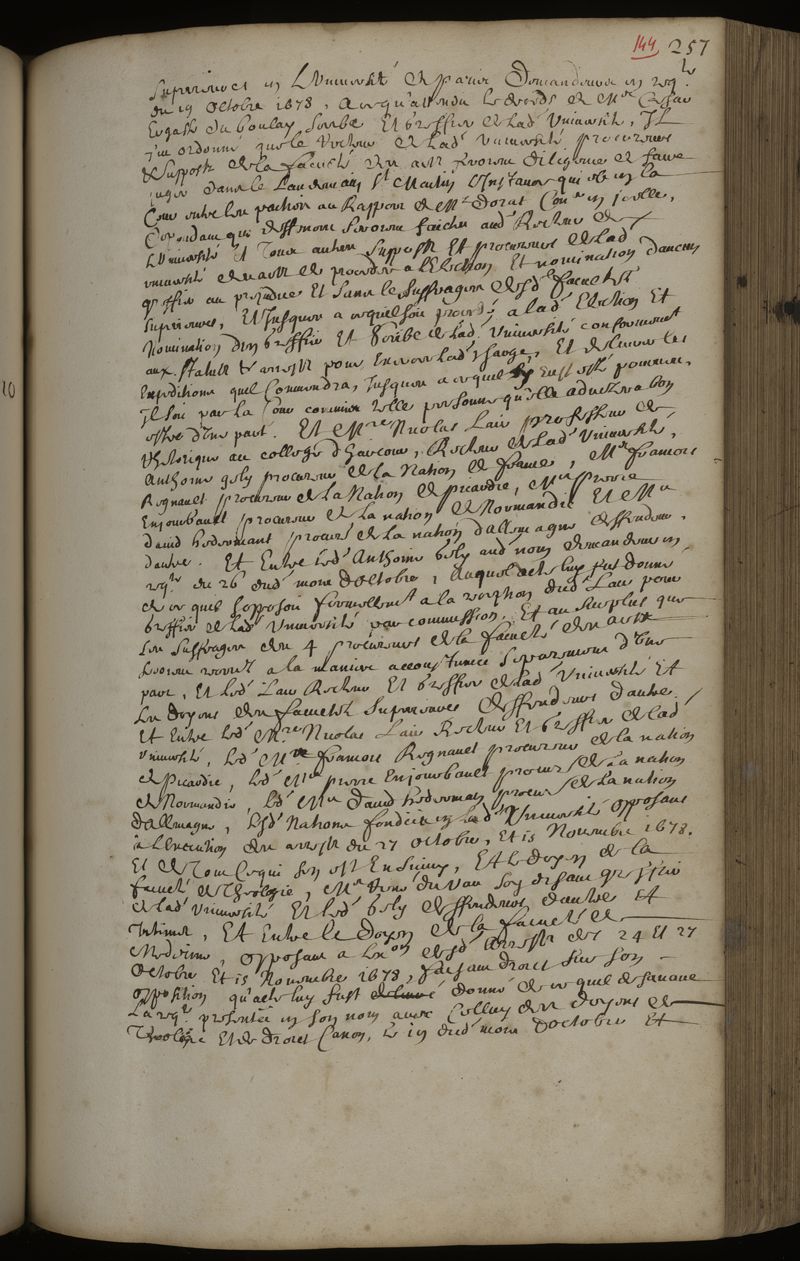 144 257
Superieures en L Université de Paris Demandeurs en reqte
du 19 Octobre 1678, a ce qu'attendu le deceds de Me Cesar
Egasse du boulay Scribe Et Greffier de lad Université, Il
fut ordonné que le Recteur de lad Université procureurs
& Supposts de la faculté des arts feroient diligence de faire
juger dans le Landemain St Martin L'Instance qui est en la
Cour entre les parties au Rapport de Mr Dorat Conr en icelle,
Cependant que deffences seroient faictes aud Recteur de
L Université Et Tous autres Supposts Et procureurs de lad
université des arts de proceder a l'Election Et nomination d'aucun
greffier au prejudice Et sans le suffrage desd facultés
Superieures, Et Jusques a ce quil soit procedé a lad Election Et
Nomination d'un Greffier Et Scribe de lad Université conformement
aux statuts & arrests pour Exercer lad charge, Et delivrer les
Expeditions quil Conviendra, Jusques a ce quil y Eust esté pourveu,
Il soit par la Cour commis telle personne qu'elle advisera bon
estre d'Une part. Et Mre Nicolas Lair professeur de
Rhetorique au college d'harcour, Recteur de lad Université,
Anthoine goby procureur de la Nation de france, Me francois
Regnault procureur de la Nation de picardie, Me pierre
Enjoubault procureur de la nation de Normandie Et Me
David hederman procur de la nation d'allemagne deffendeurs
d'autre. Et Entre led Anthoine aud nom demandeur en
reqte du 26 dud mois d'Octobre, a acte luy fut donné
de ce quil s'opposoit formellemt a la reception dud Lair pour
Greffier de lad Université par commission, Et au surplus que
les suffrages des 4 procureurs de la faculté des arts
seroient receus a la maniere accoustumée separement d'Une
part, Et led Lair Recteur Et Greffier de lad Université Et
les doyens des facultés Superieures deffendeurs d'autre
Et Entre led Mre Nicolas Lair Recteur Et Greffier de lad
Université, led Mre francois Regnault procureur de la nation
de Picardie, led Me pierre Enjoubault procur de la nation
de Normandie, led Me David hederman procur de la nation
d'allemagne, lesd Nations fondées en lad Université opposans
a l'Execution des arrests du 27 octobre, Et 15 Novembre 1678.
Et de Tout ce qui s'en est Ensuivy, Et le doyen de la
faculté de Theologie, Me du Vau soy disant greffier
de lad Université Et led deffendeurs d'autre Et
Intimés, Et Entre le doyen de la faculté de
Medecine, opposant a l'exon desd Arrests des 24 Et 27
Octobre Et 15 Novembre 1678, faisant droict sur son
opposition qu'acte luy fust donné de ce quil desavoue
La reqte presentée en son nom avec Celluy des doyens de
Theologie Et de droict Canon, le 19 dud mois d'octobre Et